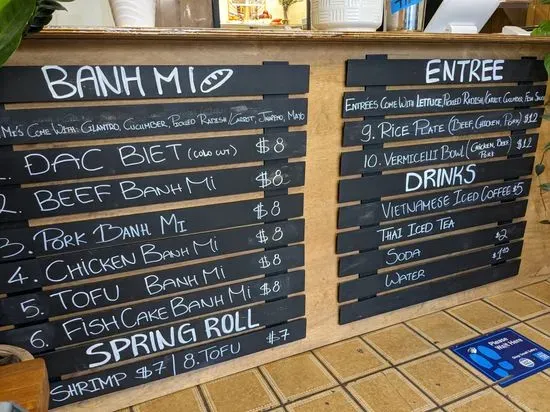 BANH MI
Mi's Come With: Cilantro, Cucumber, Pickled Radish/Carrot, Jalapeno, Mayo
1. DAC BIET (COLD CUT) $8
2. BEEF BANH MI $8
3. PORK BANH MI $8
4. CHICKEN BANH MI $8
5. TOFU BANH MI $8
6. FISH CAKE BANH MI $8
SPRING ROLL
SHRIMP $7 | 8. TOFU $7
ENTREE
ENTRÉES COME WITH LETTUCE, PICKLED RADISH/CARROT, CUCUMBER, FISH SAUCE
9. RICE PLATE (BEEF, CHICKEN, PORK) $12
10. VERMICELLI BOWL (CHICKEN, BEEF, PORK $12
DRINKS
VIETNAMESE ICED COFFEE $5
THAI ICED TEA
SODA $2
WATER $1.00
Please
Wait Here